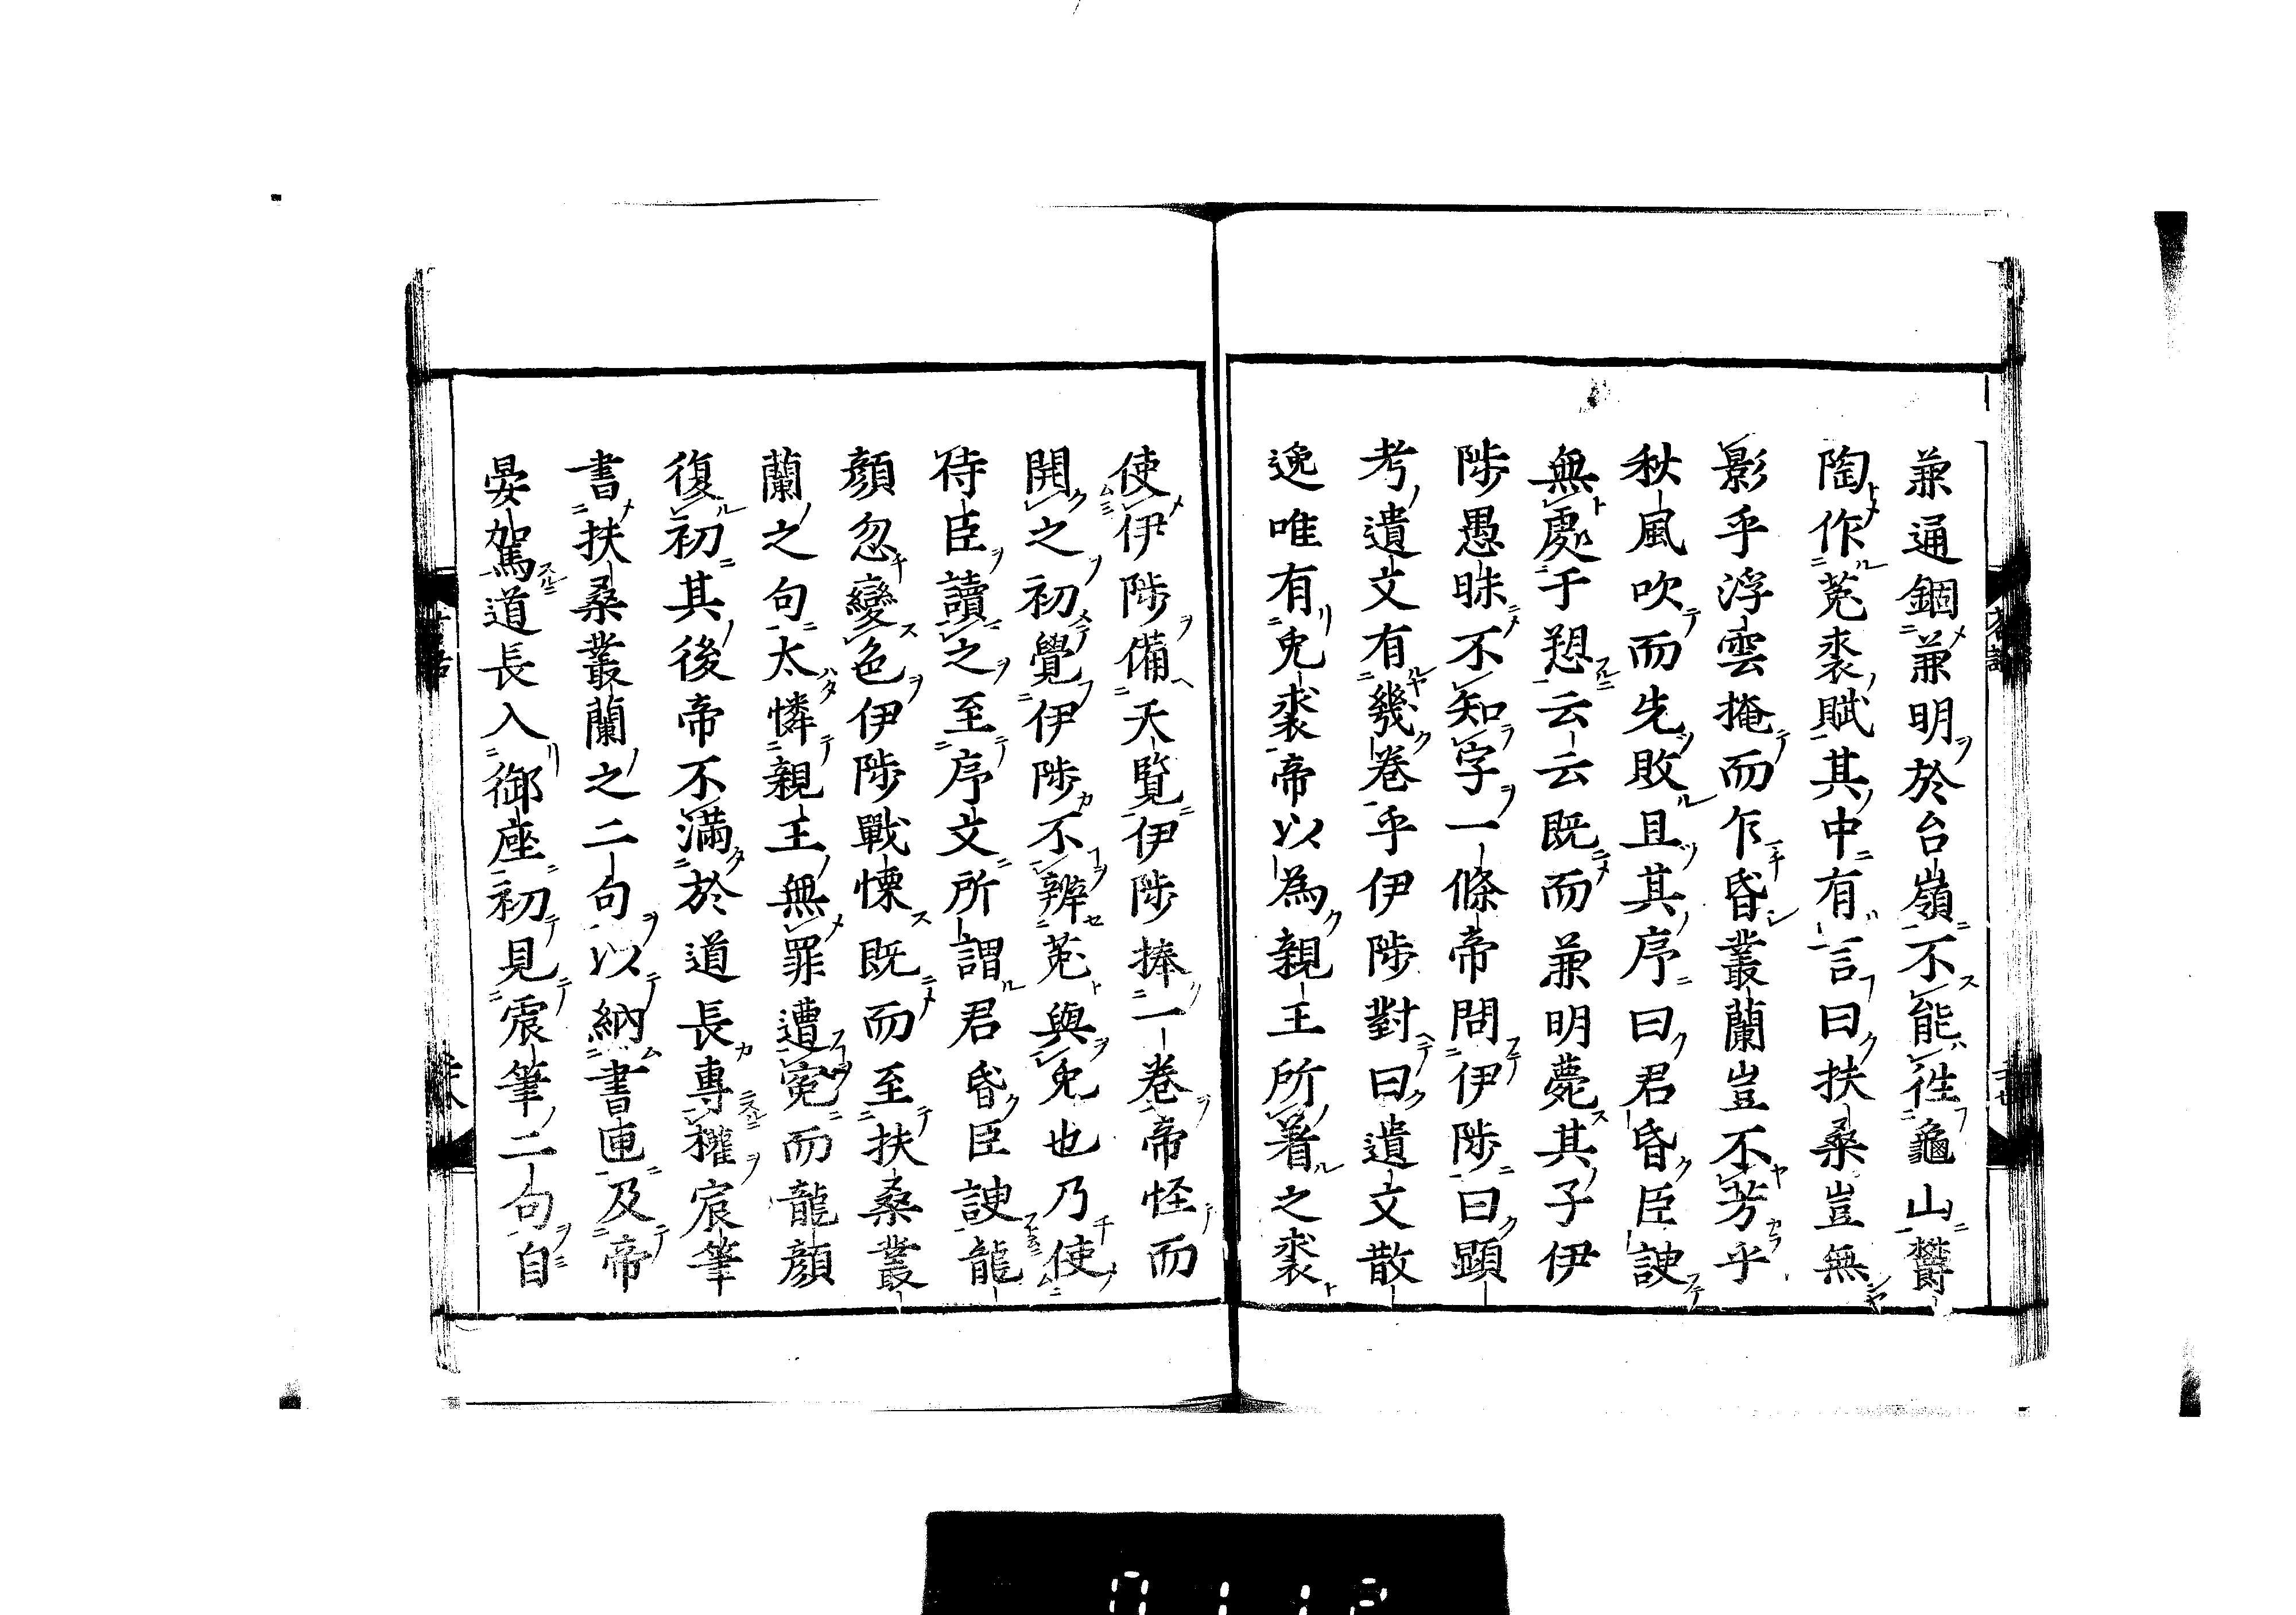 兼通錮兼明於台嶺不能徃龜山欝
陶作菟裘賦其中有言曰扶桑豈無
影乎浮雲掩而乍昏叢蘭豈不芳乎
秋風吹而先敗且其序曰君昏臣諛
無處于愬云云既而兼明薨其子伊
陟愚昧不知字一條帝問伊陟曰顕
考遺文有幾卷乎伊陟對曰遺文散
逸唯有兎裘帝以為親王所著之裘
使伊陟備天覧伊陟捧一卷帝怪而
開之初覺伊陟不辨菟與兎也乃使
侍臣讀之至序文所謂君昏臣諛龍
顔忽變色伊陟戰慄既而至扶桑叢
蘭之句太憐親王無罪遭寃而龍顔
復初其後帝不滿於道長專權宸筆
書扶桑叢蘭之二句以納書匣及帝
晏駕道長入御座初見宸筆二句自